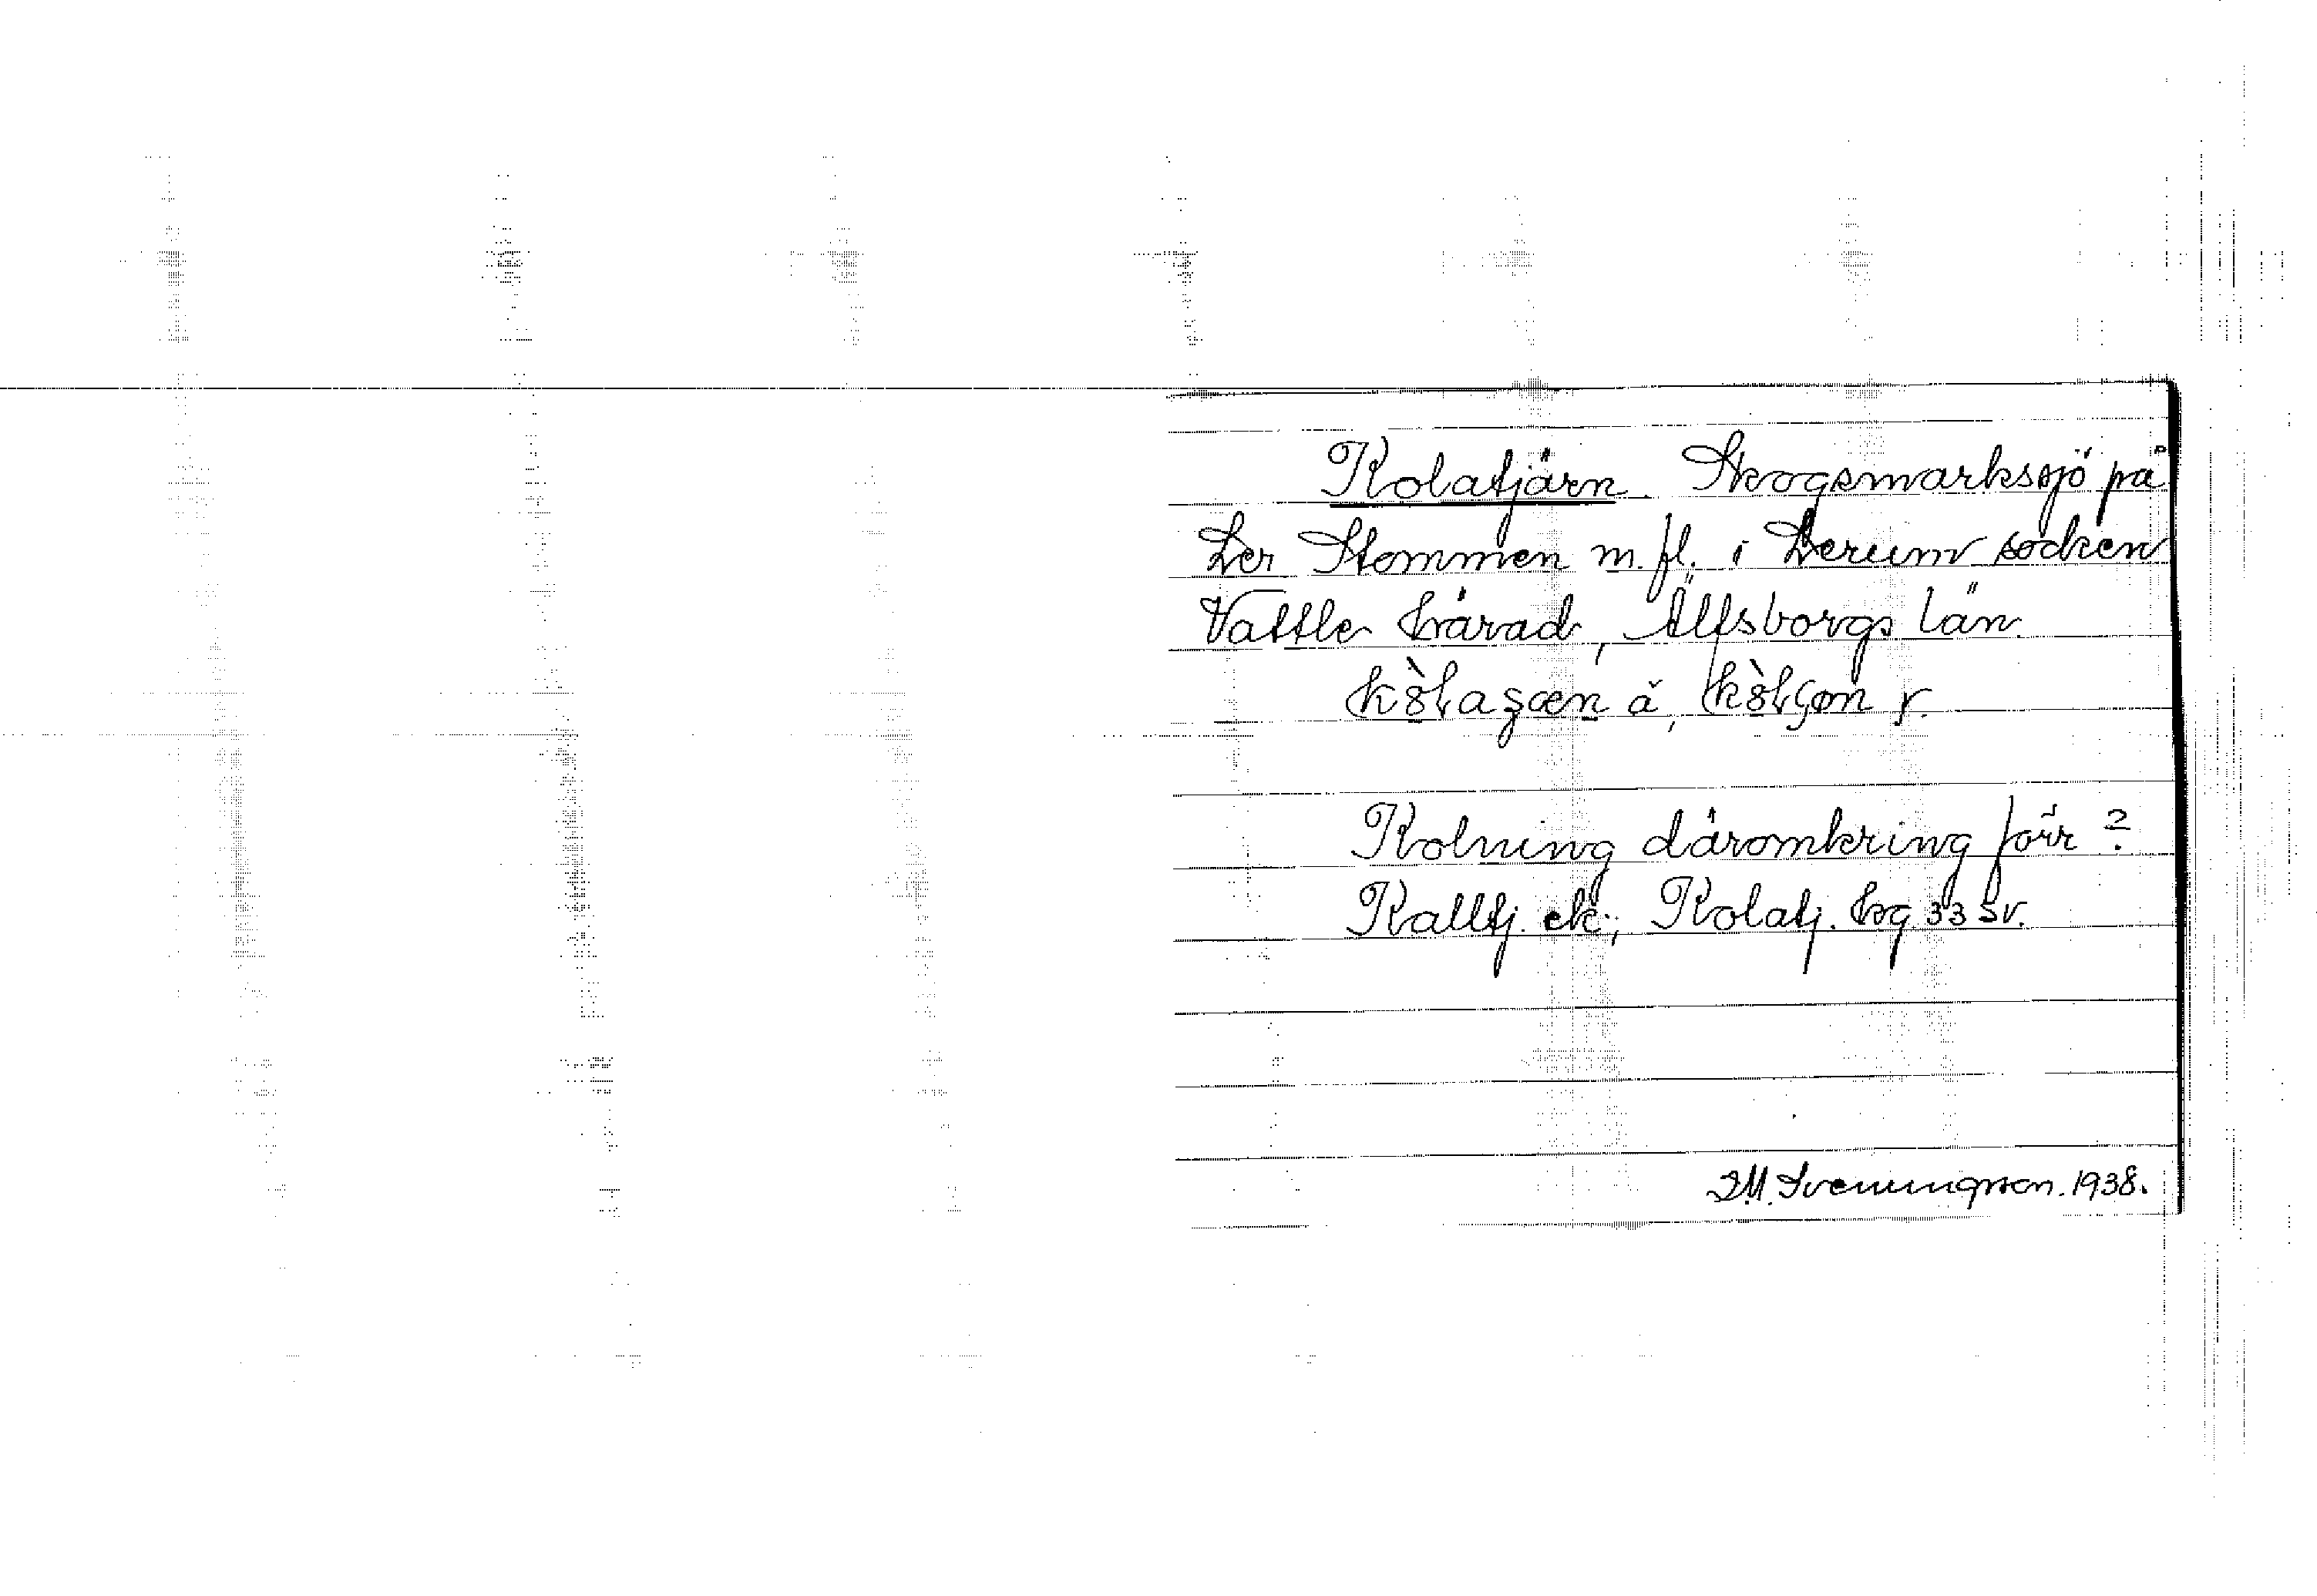 Kolatjärn. Skogsmarkssjö på
Ler Stommen m.fl. i Lerum socken
Vättle härad, Älfsborgs län.
Kolning däromkring förr?
Kalltj. ek.; Kolatj. hg. 33 SV.
I.M. Sveningson. 1938.